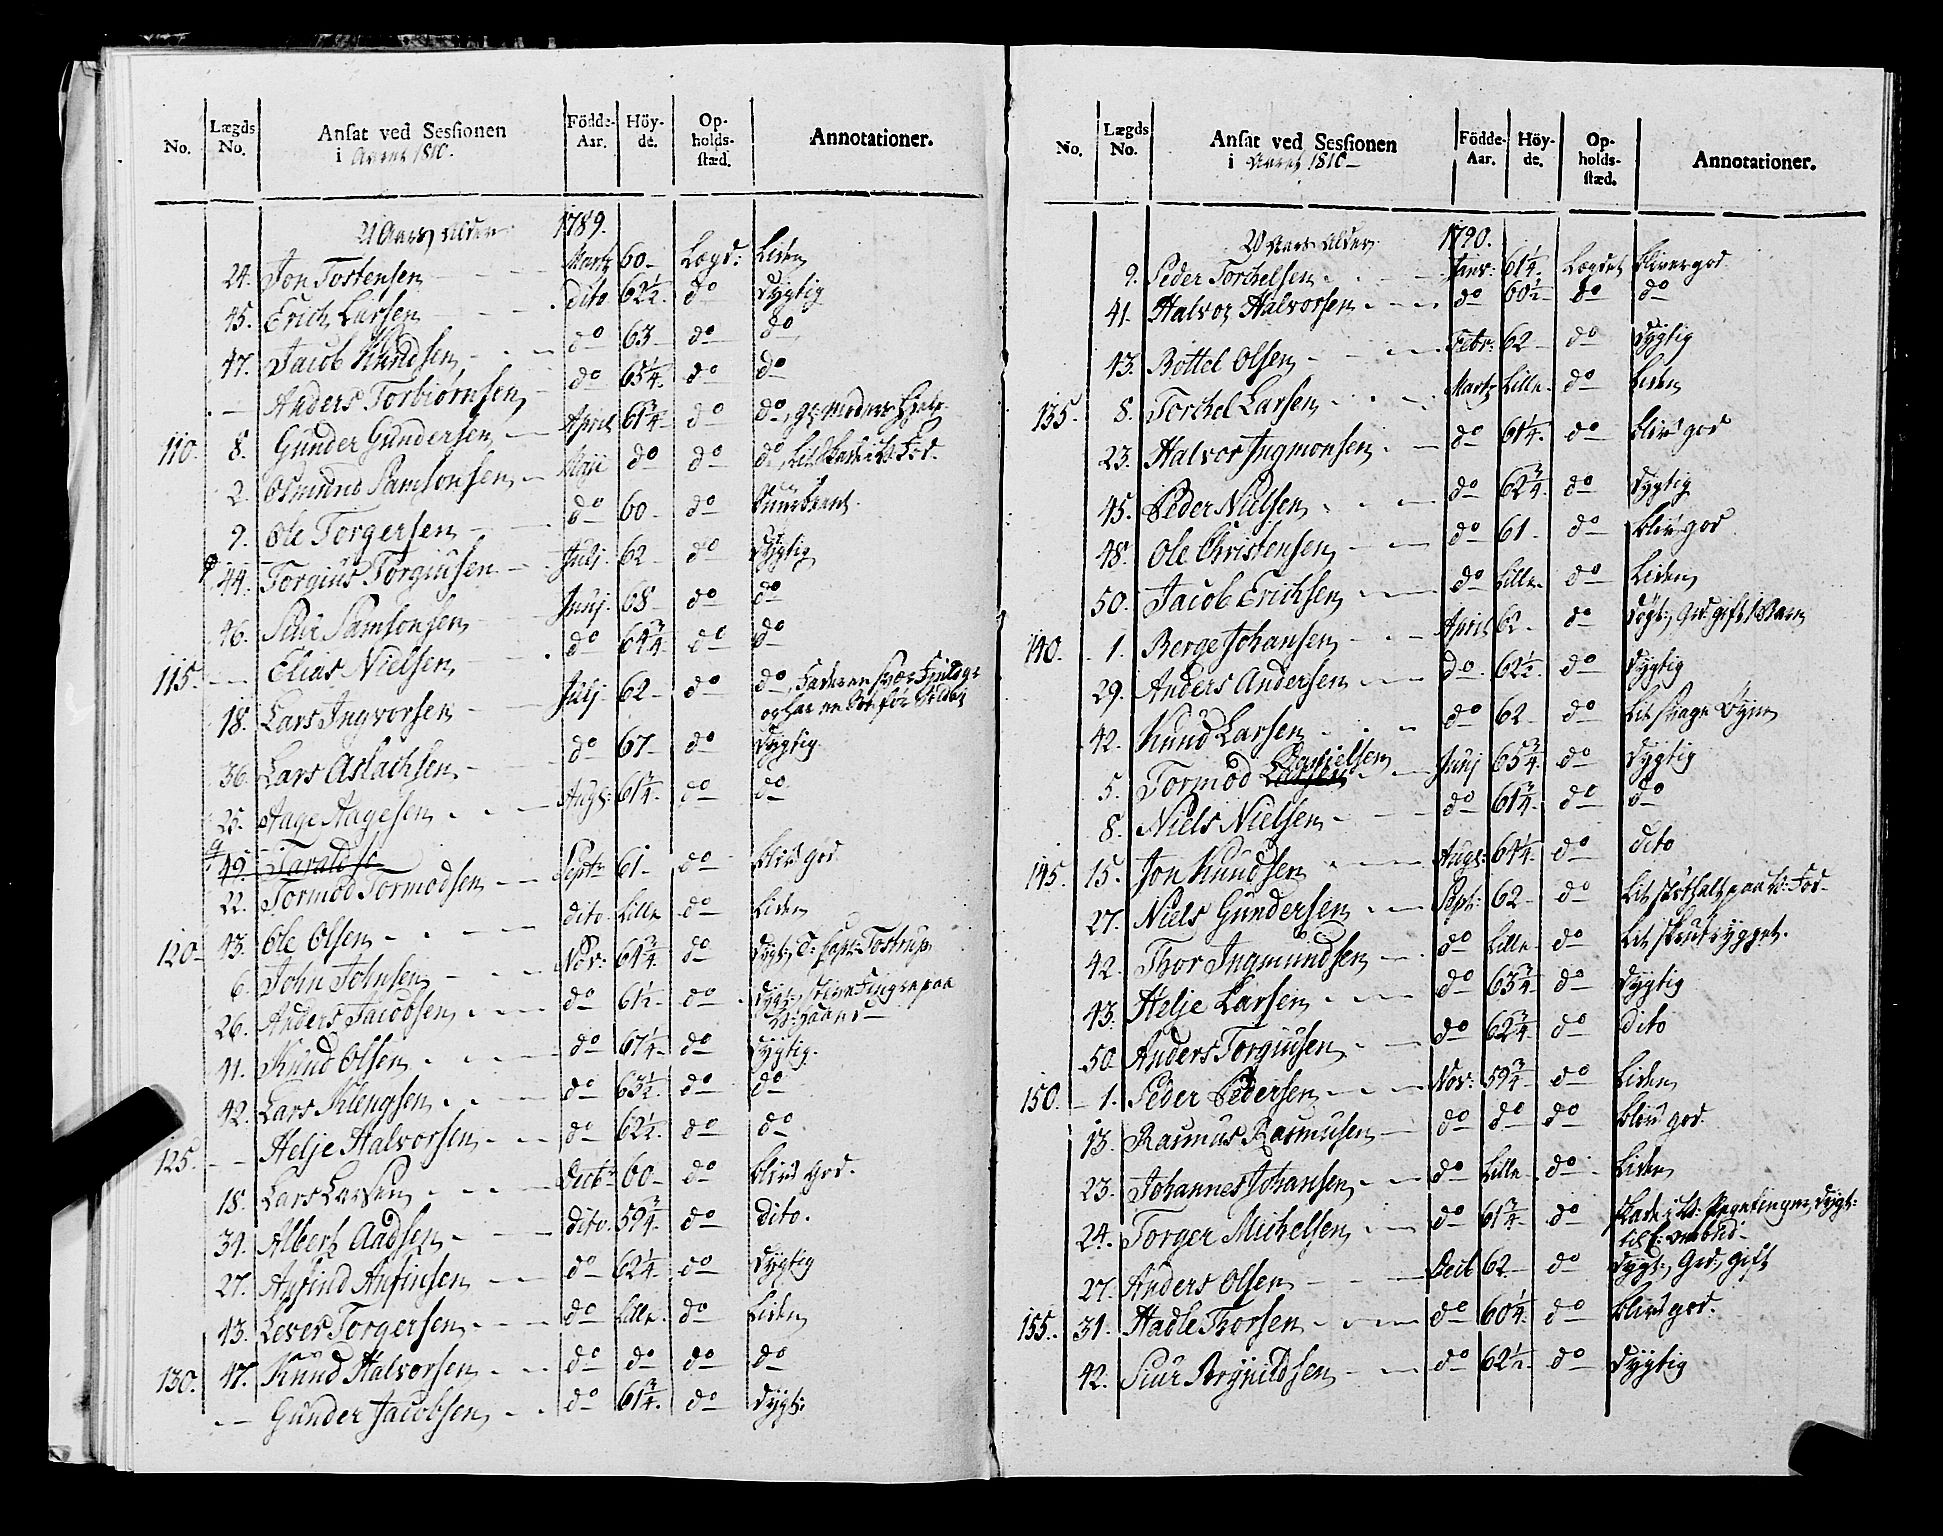 No. Lægds No. Ansat ved Sessionen i Aaret 1810. Födde-Aar. Höyde. Opholdsstæd. Annotationer.
21 Aars Alder 1789.
24. Jon Tostensen Martz 60 Lægd: Liden
45. Erich Larsen dito 62½ do Dygtig
47. Jacob Knudsen do 63 do do
- Anders Torbiørnsen do 65¼ do do
110. 8. Gunder Gundersen April 61¾ do do,
2. Osmund Samsonsen Maji do do do,
9. Ole Torgersen do 60 do
44. Torgius Torgiusen Julj 62 do Dygtig
46. Siur Samsonsen Junj 68 do do
115. - Elias Nielsen do 64¾ do do
18. Lars Ingvorsen Julj 62 do do, Faderen
36. Lars Aslachsen do 67 do Dygtig
25. Aage Aagesen Augs: 61¾ do do
49. Taralds
22. Tormod Tormodsen Septr 61 do bliv god
120. 43. Ole Olsen dito Lille do Liden
6. John Johnsen Nov: 64¾ do Dygt:, T: Capt: Tostrup
26. Anders Jacobsen do 61½ do Dygt:, stive Fingre paa
V: Haand
41. Knud Olsen do 67¼ do Dygtig.
42. Lars Klengsen do 63½ do do
125. - Helje Halvorsen do 62½ do do
18. Lars Larsen Decbr 60 do bliv god.
31. Albert Aadsen dito 59¾ do dito.
27. Anfind Anfinsen do 62¼ do Dygtig
43. Lever Torgersen do Lille do Liden
130. 47. Knud Halvorsen do do do do
- Gunder Jacobsen do 61¾ do Dygt:
No. Lægds No. Ansat ved Sessionen i Aaret 1810 Födde-Aar. Höyde. Opholdsstæd. Annotationer.
20 Aars Alder 1790.
9. Peder Torchelsen Janr: 61¼ Lægdet bliver god
41. Halvor Halvorsen do 60½ do do
43. Bottel Olsen Febr: 62 do Dygtig
135. 8. Torchel Larsen Martz Lille do Liden
23. Halvor Ingmonsen do 61¼ do bliv god
45. Peder Nielsen do 62¾ do Dygtig
48. Ole Christensen do 61 do bliv god
50. Jacob Erichsen do Lille do Liden
140. 1. Berge Johansen April 62 do Dygt:, Grd: gift 1 Barn
29. Anders Andersen do 62½ do Dygtig
42. Knud Larsen do 62 do Lit svage Øyne
5. Tormod Larsen Danielsen Junj 65¾ do Dygtig
8. Niels Nielsen do 61¾ do do
145. 15. Jon Knudsen Augs: 64¼ do dito
27. Niels Gundersen Sept: 62 do Lit paa V: Fod
42. Thor Ingmundsen do Lille do Lit skutrygget.
43. Helje Larsen do 63¾ do Dygtig
50. Anders Torgiusen do 62¾ do dito
150. 1. Peder Pedersen Nov: 59¾ do Liden
13. Rasmus Rasmusen do do do bliv god.
23. Johannes Johansen do Lille do Liden
24. Torger Michelsen do 61¾ do skade i V: Pegefinger, Dygt:
27. Anders Olsen Decb 62 do Dygt:, Grd:, gift
155. 31. Hadle Thorsen do 60¼ do bliv god.
42. Siur Brynildsen do 62½ do Dygtig